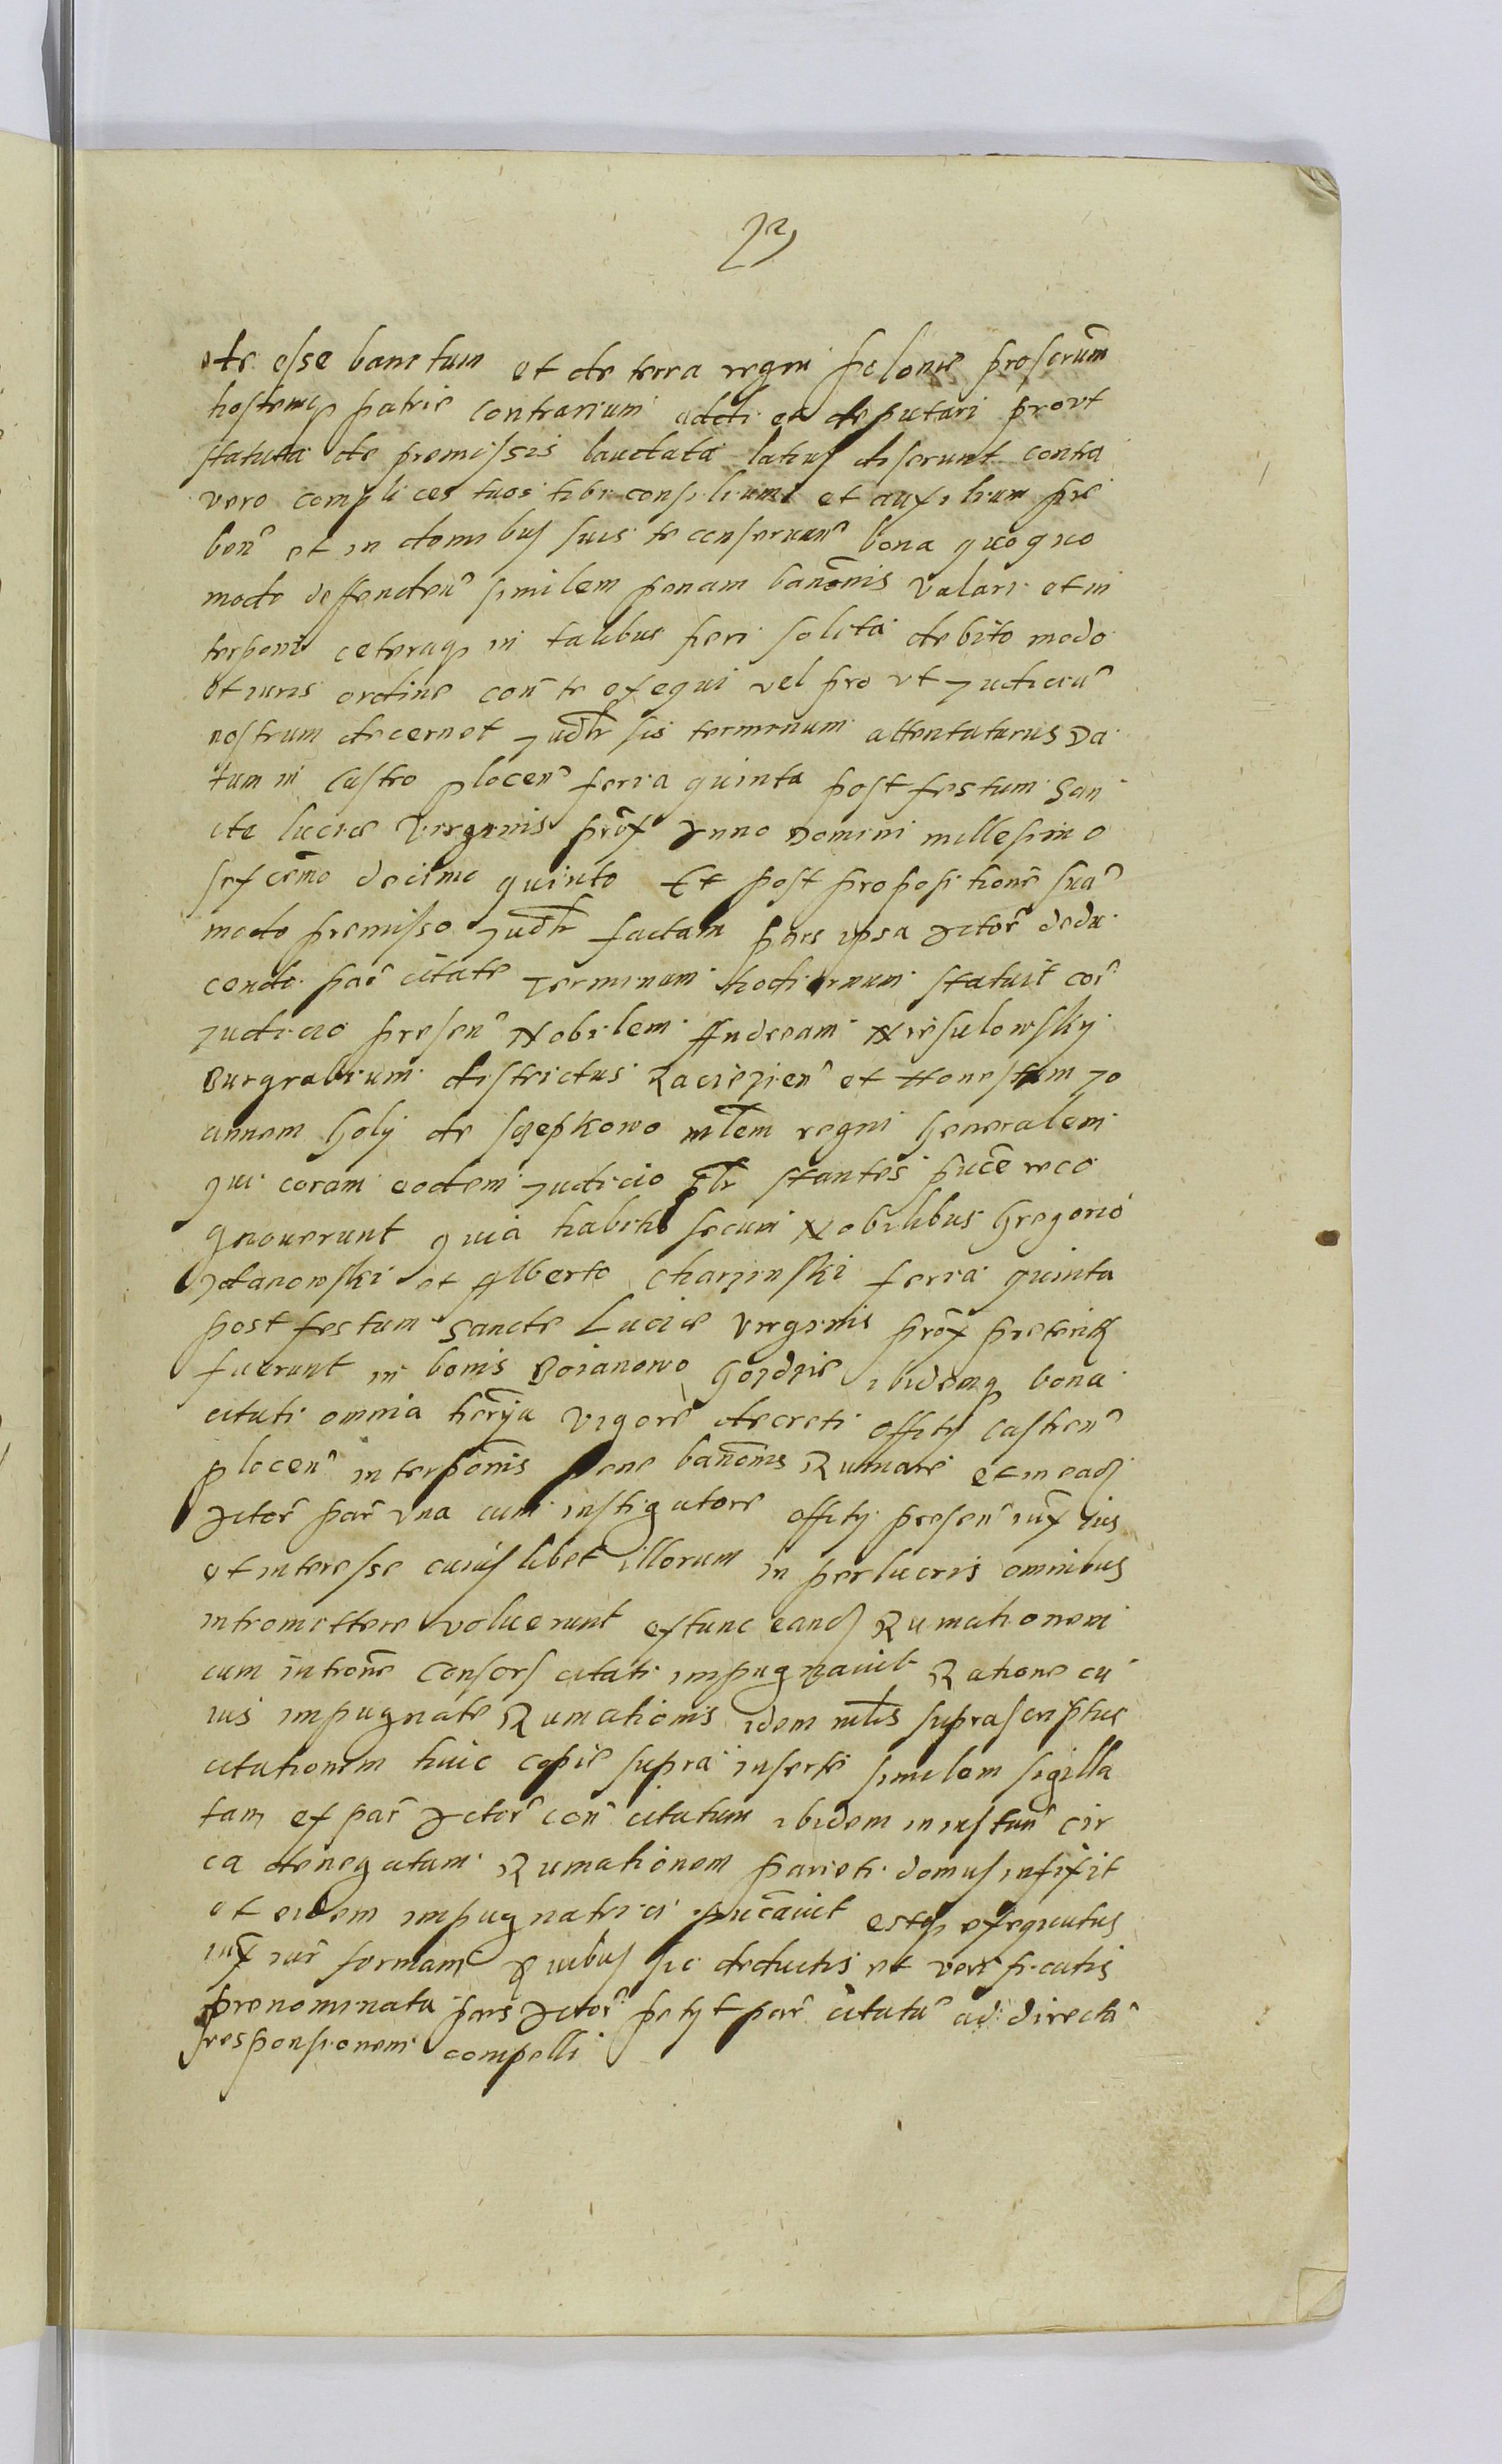 te esse banitum et de terra regni Polonie proscrum̄
hostemq patrie contrarium addi et deputari prout
statuta de premissis laudata latius diserunt contra
vero complices tuos tibi consilium et auxilium pre
ben̄ et in domibus suis te conseruan̄ bona quoquo
modo deffenden̄ similem penam bano͞nis valari et in
terponi ceteraq in talibus fieri solita debito modo
et iuris ordine con̄ te exequi vel pro ut Judiciū
nostrum decernet Judlr sis terminum attentaturus Da
tum in Castro plocen̄ feria quinta post festum San
cte lucie virginis pro͞x Anno Domini millesimo
sexcem̄o decimo quinto Et post propositione͞ sua͞
modo premisso Judlr factam pars ipsa Actor̄ dedu
cendo par̄ citate Terminum hodiernum statuit cor̄
Judicio presen̄ Nobilem Andream Niesulowsky
Burgrabium districtus Raciezien̄ et Honestum Jo
annem Goly de Szczepkowo mlem regni Generalem
qui coram eodem Judicio plr stantes puce͞ reco
gnouerunt quia habitis secum Nobilibus Gregorio
Zdanowski et Alberto Charzinski feria quinta
post festum Sancte Lucie virginis pro͞x preterit
fuerunt in bonis Boianowo Gozdzie ibidemq bona
citati omnia heri͞ja vigore decreti offity castren̄
plocen̄ interpo͞nis pene bano͞nis Rumare et in ead
Actor̄ par̄ vna cum instigatore offity presen̄ iux͞ ius
et interesse cuiuslibet illorum in perlucris omnibus
intromittere voluerunt extunc eand Rumationem
cum intro͞ne consors citati impugnauit Ratione cu
ius impugnate Rumationis idem mlis suprascriptus
citationem huic copie supra inserte similem sigilla
tam ex par̄ Actor̄ con̄ citatum ibidem in instan̄ cir
ca denegatam Rumationem parieti domus infixit
et eidem impugnatrici puca͞uit estq exequutus
iux͞ iur̄ formam Quibus sic deductis et verificatis
prenominata pars Actor̄ petyt par̄ citata͞ ad directa͞
responsionem compelli